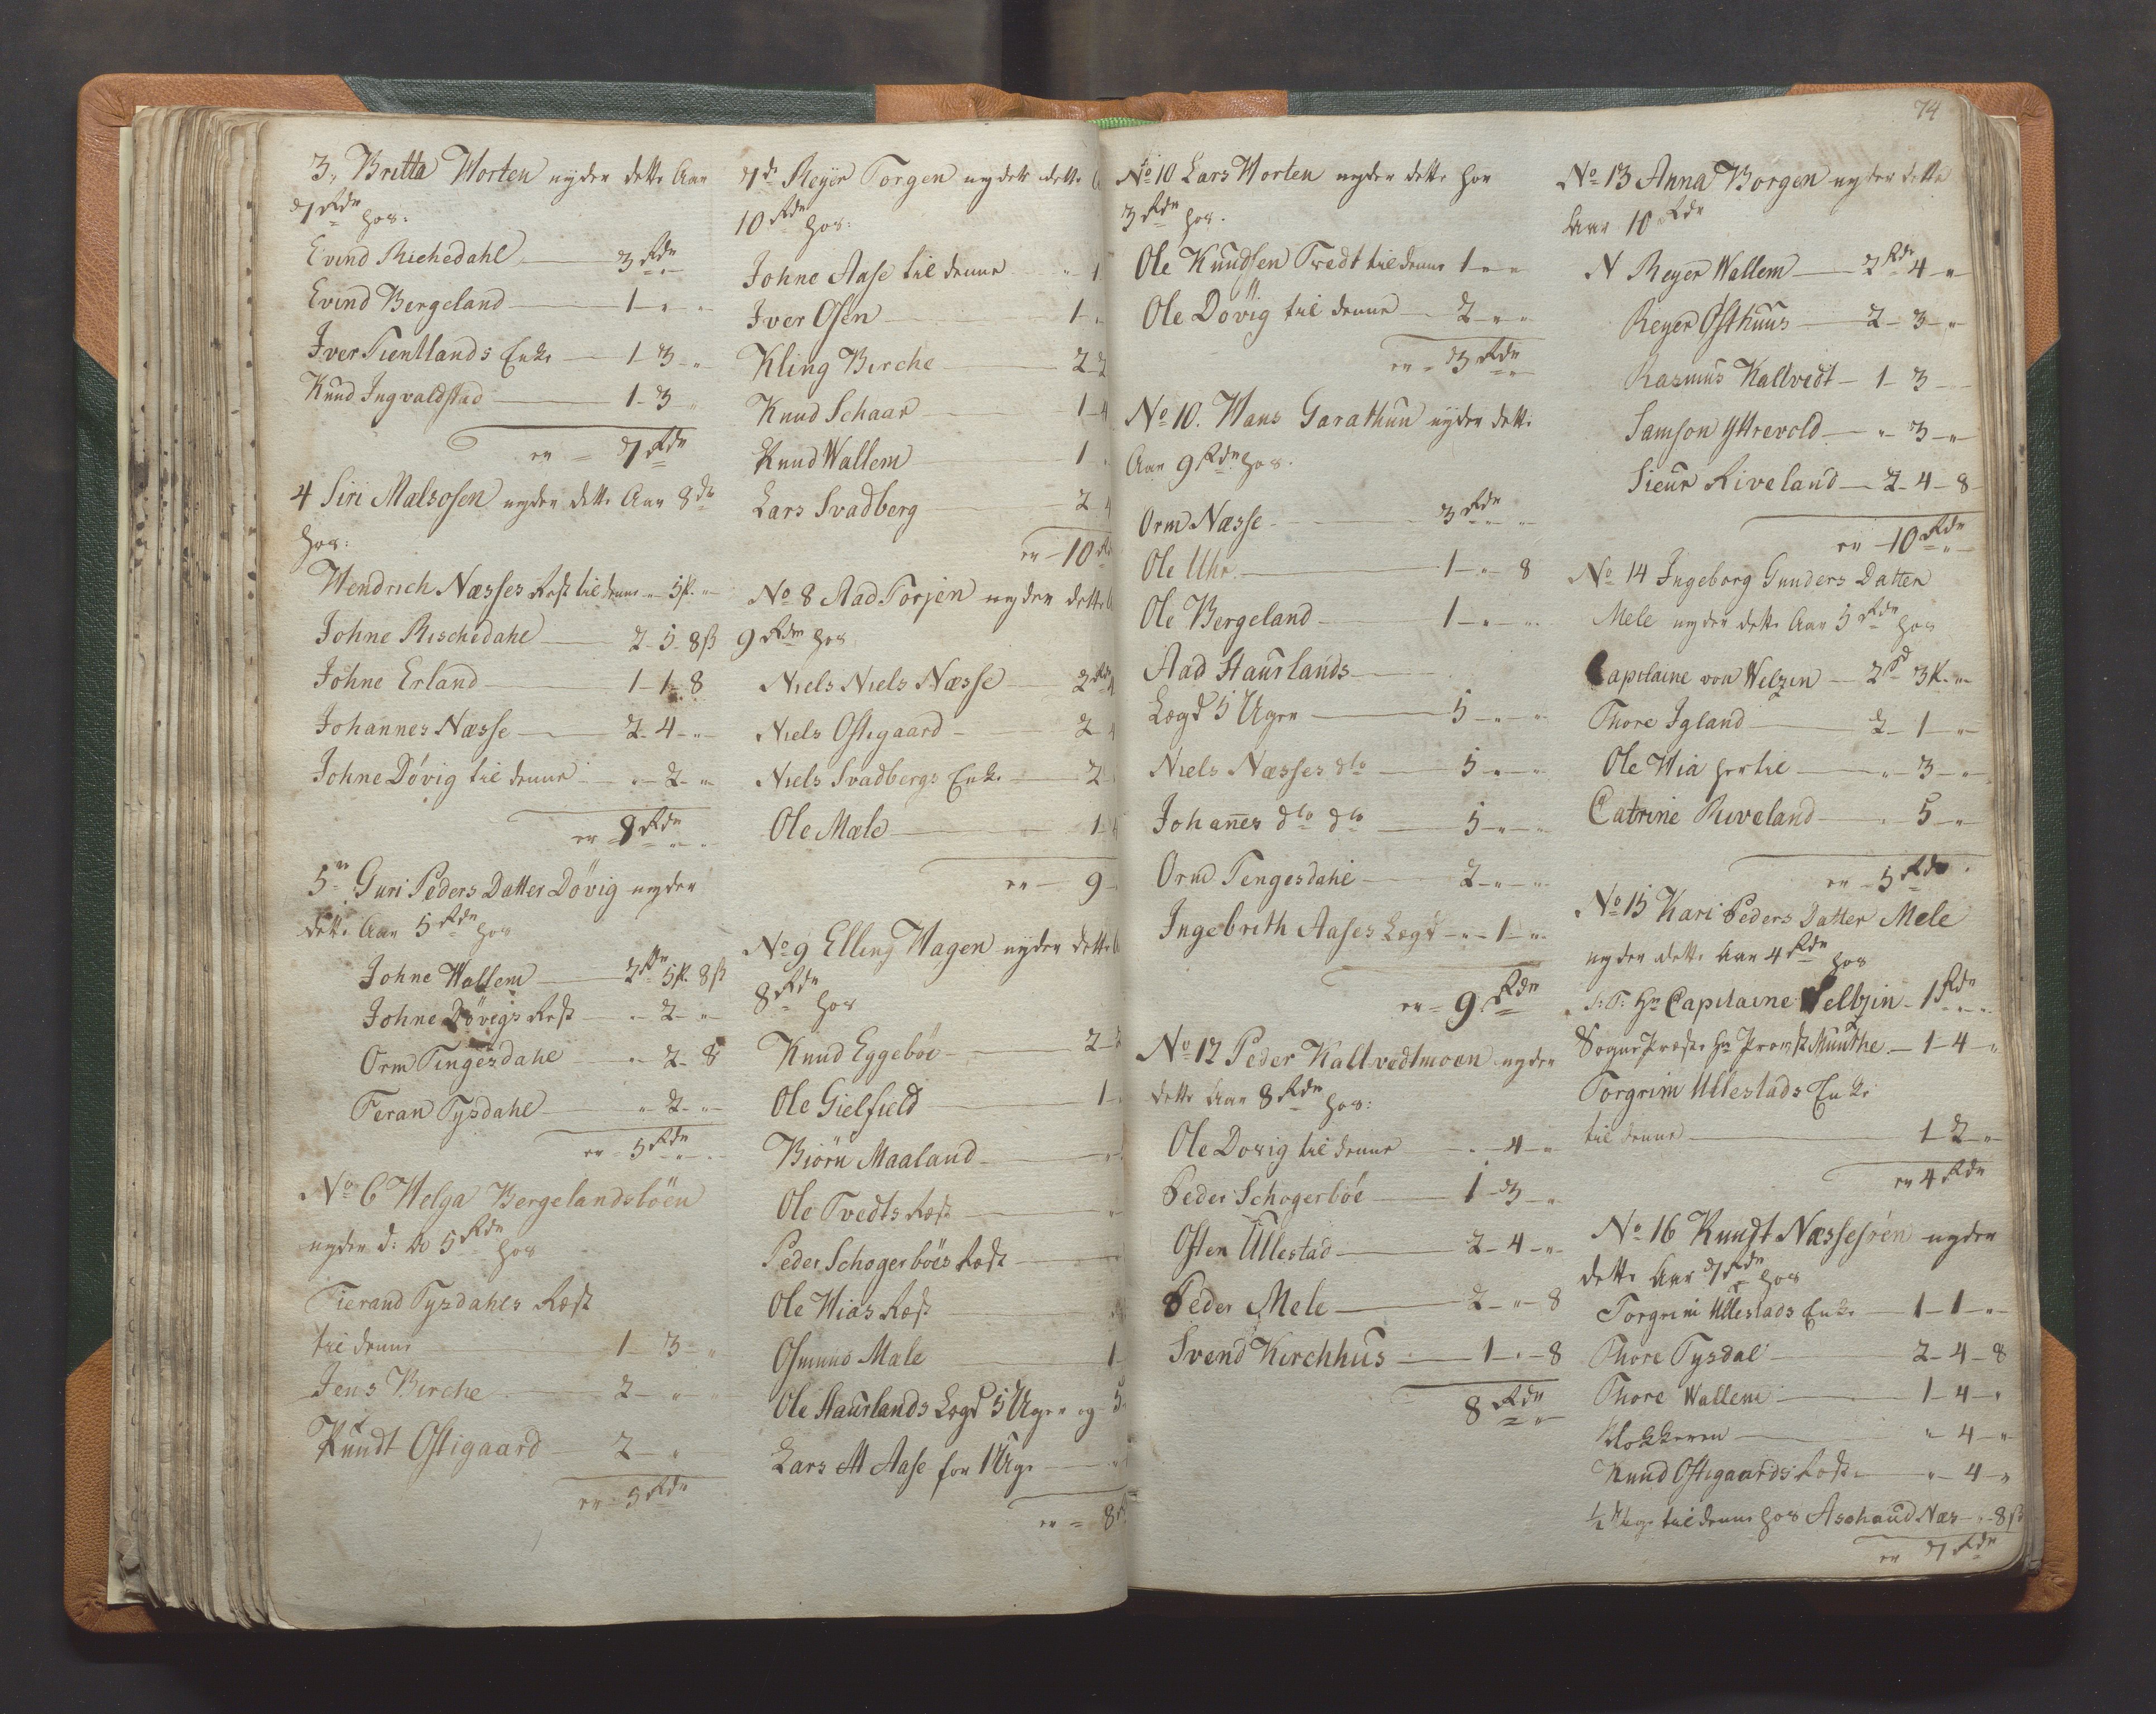 3, Britta Horten nyder dette Aar
7 Rdr hos:
Evind Richedahl 3 Rdr
Evind Bergeland 1 - " "
Iver Tientlands Enke 1 - 3 - "
Knud Ingvaldstad 1 - 3 "
er - 7 Rdr
4 Siri Malsosen nyder dette Aar 8 dr
hos:
Hendrich Næsses Rest til denne " 5 K. "
Johne Rischedahl 2 - 5 - 8 ß
Johne Erland 1 - 1 - 8
Johannes Næsse 2 - 4 - "
Johne Døvig til denne " - 2 - "
er 8 Rdr
5. Guri Peders Datter Døvig nyder
dette Aar 5 Rdr hos
Johne Wallem 2 Rdr 5 K. 8 ß
Johne Døvigs Rest " - 2 - "
Orm Tingesdahl " 2 - 8
Feran Tysdahl " 2 - "
er 5 Rdr
No 6 Helga Bergelandsböen
nyder d: A 5 Rdr hos
Tierand Tysdahls Rest
til denne 1 - 3 - "
Jens Birche 2 - " "
Knudt Ostigaard 2 - "
er 5 Rdr
7 de Reyer Torgen nyder dette
10 Rdr hos:
Johne Aase til denne " 1
Iver Osen 1
Kling Birche 2 - 2
Knud Schaar 1 - 4
Knud Wallem 1
Lars Svadberg 2 - 4
er - 10 R
No 8 Aad Torjen nyder dette
9 Rdr hos
Niels Niels Næsse 2 Rdr 4
Niels Ostigaard 2 - 4
Niels Svadbergs Enke 2
Ole Mæle 1
er - 9
No 9 Elling Hagen nyder dette
8 Rdr hos
Knud Eggebøe 2
Ole Gielfield 1
Biörn Maaland
Ole Tvedts Rest
Peder Schogerböes Rest
Ole Hias Rest
Osmund Male 1
Ole Haurlands Lægd 5 Uger og 5
Lars Aase for 1 Uge
er - 8
74
No 10 Lars Horten nyder dette hos
3 Rdr hos.
Ole Knudsen Tvedt til denne 1 " "
Ole Døvig til denne 2 " "
er - 3 Rdr
No 10. Hans Garathun nyder dette
Aar 9 Rdr hos.
Orm Næsse 3 Rdr
Ole Uhr 1 - " - 8
Ole Bergeland 1 - " - "
Aad Haurlands
Lægd 5 Uger 5 - " - "
Niels Næsses dto 5 - " - "
Johañes dto dto 5 - " - "
Orm Tengesdahl 2 - " - "
Ingebrith Aases Lægd " - 1 - "
er - 9 Rdr
No 12 Peder Kaltvedtmoen nyder
dette Aar 8 Rdr hos:
Ole Dovig til denne " - 4 - "
Peder Schogerbøe 1 - 3 - "
Osten Ullestad 2 - 4 - "
Peder Mele 2 - " - 8
Svend Kirchhus 1 - " - 8
8 Rdr
No 13 Anna Borgen nyder dette
Aar 10 Rdr
N Reyer Wallem 2 Rdr 4 - "
Reyer Osthuus 2 - 3 - "
Rasmus Kallvedt 1 - 3 -
Samson Yttrevold " - 3 - "
Sieur Riveland 2 - 4 - 8
er - 10 Rdr
No 14 Ingeborg Gunders Datter
Mele nyder dette Aar 5 Rdr hos
Capitaine von Welzin 2 Rd 3 K. "
Thore Igland 2 - 1 - "
Ole Hia her til " - 3 - "
Catrine Riveland " 5 - "
er - 5 Rdr
No 15 Kari Peders Datter Mele
nyder dette Aar 4 Rdr hos
S: T: Hr Capitaine Velbzin 1 Rdr
Sogne Præst Hr Provst Munthe 1 - 4 - "
Torgrim Ullestads Enke
til denne 1 - 2 - "
er 4 Rdr
No 16 Knudt Næssesöen nyder
dette Aar 7 Rdr hos
Torgrim Ullestads Enke 1 - 1 - "
Thore Tysdal 2 - 4 - 8
Thore Wallem 1 - 4 - "
Klokkeren " 4 - "
Knud Ostigaards Rest " - 4 - "
1/2 Uge til denne hos Aschaud Næs " - 8 ß
er 7 Rdr